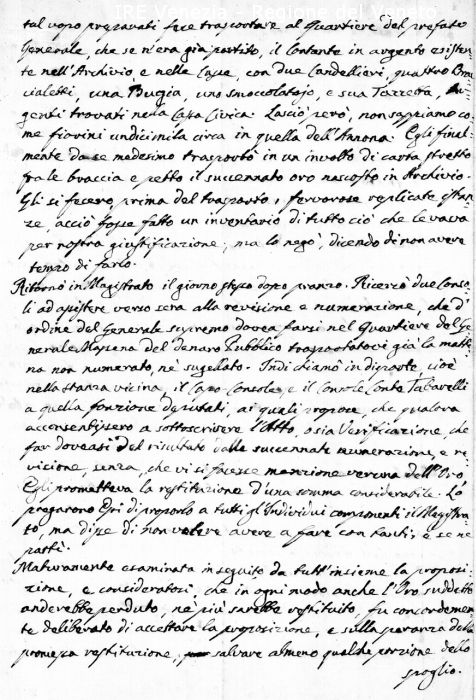 IRE Venezia - Regione del Veneto
tal uopo preparati fece trasportare al Quartiere del prefato
Generale, che se n'era già partito, il Contante in argento esisten-
te nell'Archivio, e nelle Casse, con due Candellieri, quattro Bra-
cialetti, una Bugia, uno smoccolatojo, e sua Tazzetta, Ar-
genti trovati nella Cassa Civica. Lasciò però, non sappiamo co-
me fiorini undicimila circa in quella dell'Annona. Egli final-
mente da se medesimo trasportò in un involto di carta stretto
fra le braccia e petto il succennato oro nascosto in Archivio.
Gli si fecero, prima del trasporto, fervorose replicate istan-
ze, acciò fosse fatto un inventario di tutto ciò che levava
per nostra giustificazione; ma lo negò, dicendo di non avere
tempo di farlo.
Ritornò in Magistrato il giorno stesso dopo pranzo. Ricercò due Conso-
li ad assistere verso sera alla revisione e numerazione, che d'
ordine del Generale supremo dovea farsi nel Quartiere del Ge-
nerale Massena del denaro Pubblico trasportatovi già la matti-
na non numerato, nè sugellato. Indi chiamò in disparte, cioè
nella stanza vicina, il Capo-Console, e il Console Conte Tabarelli
a quella fonzione deputati, ai quali propose, che qualora
acconsentissero a sottoscrivere l'Atto, o sia Verificazione, che
far doveasi del risultato dalle succennate numerazione, e re-
visione, senza, che vi si facesse menzione veruna dell'Oro
Egli prometteva la restituzione d'una somma considerabile. Lo
pregarono Essi di proporlo a tutti gl'Individui componenti il Magistra-
to, ma disse di non volere avere a fare con tanti, e se ne
partì.
Maturamente esaminata in seguito da tutt'insieme la proposi-
zione, e consideratosi, che in ogni modo anche l'Oro suddetto
anderebbe perduto, nè più sarebbe restituito, fu concordemen-
te deliberato di accettare la proposizione, e sulla speranza della
promessa restituzione, salvare almeno qualche porzione dello
spoglio.